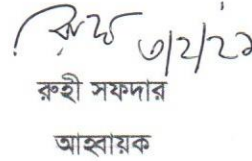 ৩/২/২১
রুহী সফদার
আহ্বায়ক